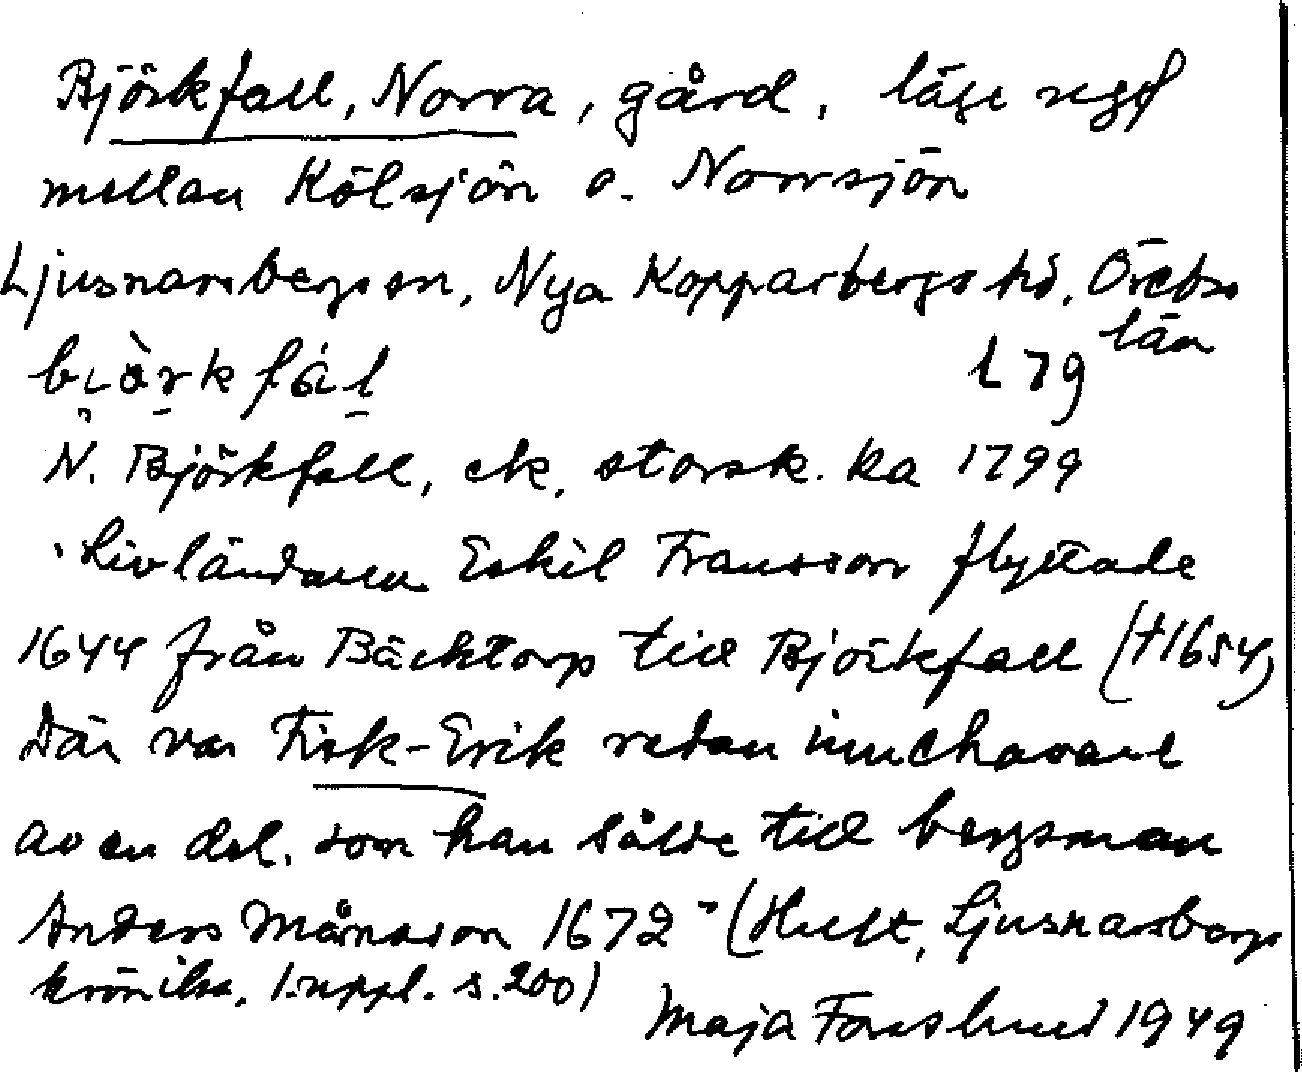 Björkfall, Norra, gård, läge
mellan Kölsjön o. Norrsjön
Ljusnarsbergs sn, Nya Kopparbergs hd, Örebro
län
biàrkfál L 79
N. Björkfall, ek. storsk. ka 1799
"Livländaren Eskil Fransson flyttade
1644 från Bäcktorp till Björkfall (†1654)
Där var Fisk-Erik redan innehavare
av en del, som han sålde till bergsman
Anders Månsson 1672" (Hult, Ljusnarsbergs
krönika, 1. uppl. s. 200)
Maja Forslund 1949